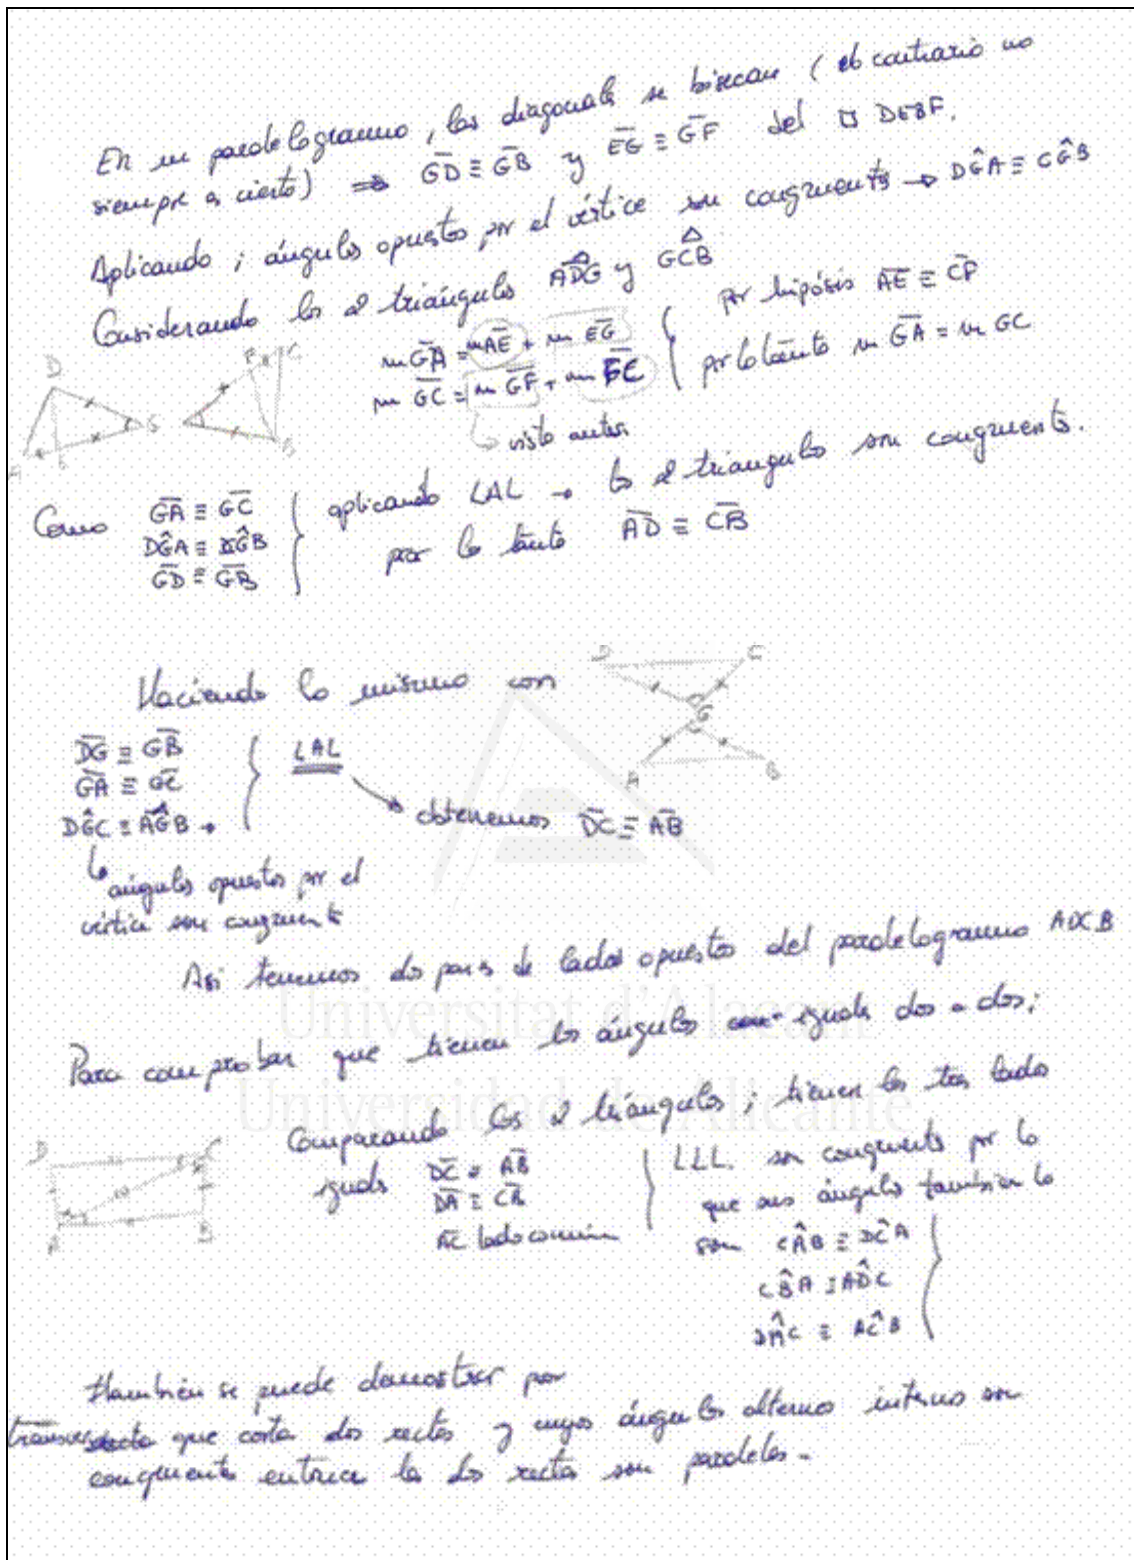 En un paralelogramo, las diagonales se bisecan (el contrario no
siempre es cierto) ⇒ GD ≡ GB y EG ≡ GF del □ DEBF.
Aplicando; ángulos opuestos por el vértice son congruentes → DĜA ≡ CĜB
Considerando los 2 triángulos ADG y GCB
m GA = m AE + m EG
m GC = m GF + m FC
por hipótesis AE ≡ CF
por lo tanto m GA = m GC
visto antes
D
G
A
E
F
C
B
Como GA ≡ GC
DĜA ≡ CĜB
GD ≡ GB
aplicando LAL → los 2 triangulos son congruentes.
por lo tanto AD ≡ CB
Haciendo lo mismo con
D
C
G
A
B
DG ≡ GB
GA ≡ GC
DĜC ≡ AĜB →
LAL
obtenemos DC ≡ AB
ángulos opuestos por el
vértice son congruente
Asi tenemos dos pares de lados opuestos del paralelogramo ADCB
Para comprobar que tienen los ángulos iguales dos a dos;
Universitat d'Alacant
Universidad de Alicante
Comparando los 2 triángulos; tienen los tres lados
iguales DC ≡ AB
DA ≡ CB
AC lado común
D
C
A
B
LLL. son congruents por lo
que sus ángulos también lo
son CÂB ≡ DĈA
CB̂A ≡ AD̂C
DÂC ≡ AĈB
También se puede demostrar por
que corta dos rectas y cuyos ángulos alternos internos son
congruente entonces las dos rectas son paralelas.